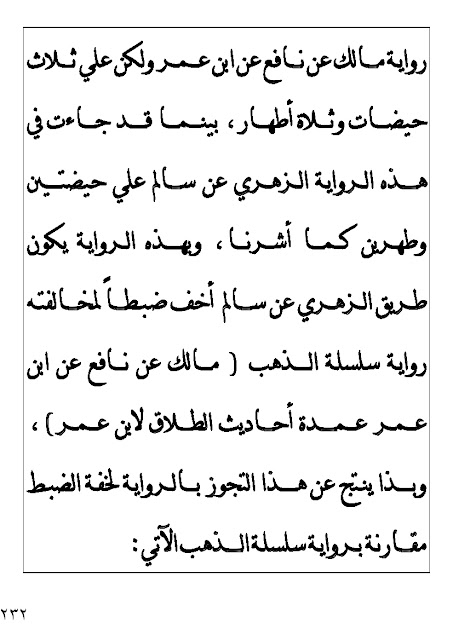 رواية مالك عن نافع عن ابن عمر ولكن علي ثلاث
حيضات وثلاة أطهار، بينما قد جاءت في
هذه الرواية الزهري عن سالم علي حيضتين
وطهرين كما أشرنا، وبهذه الرواية يكون
طريق الزهري عن سالم أخف ضبطاً لمخالفته
رواية سلسلة الذهب ( مالك عن نافع عن ابن
عمر عمدة أحاديث الطلاق لابن عمر)،
وبذا ينتج عن هذا التجوز بالرواية لخفة الضبط
مقارنة برواية سلسلة الذهب الآتي:
٢٣٢